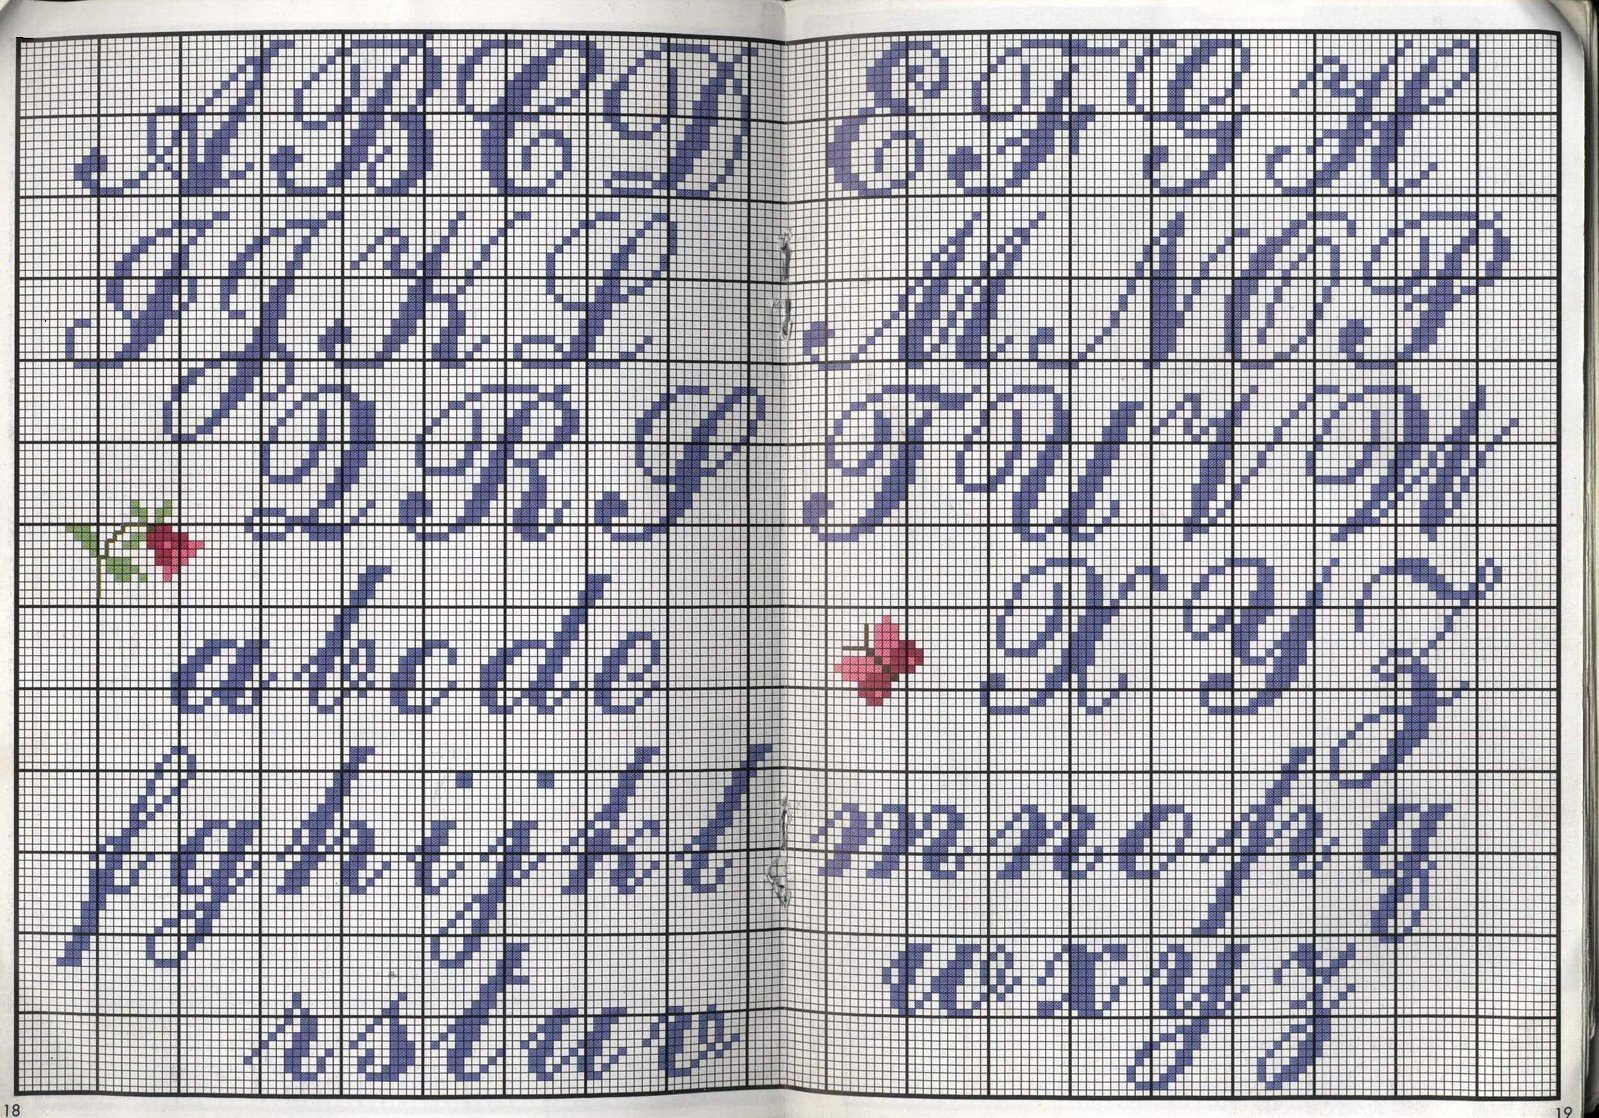 A B C D
I J K L
Q R S
a b c d e
f g h i j k l
r s t u v
18
E F G H
M N O P
T U V W
X Y Z
m n o p q
w x y z
19